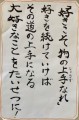 好きこそ物の上手なれ
好きを続けていけば
その道の上手になる
大好きなことをたいせつに!